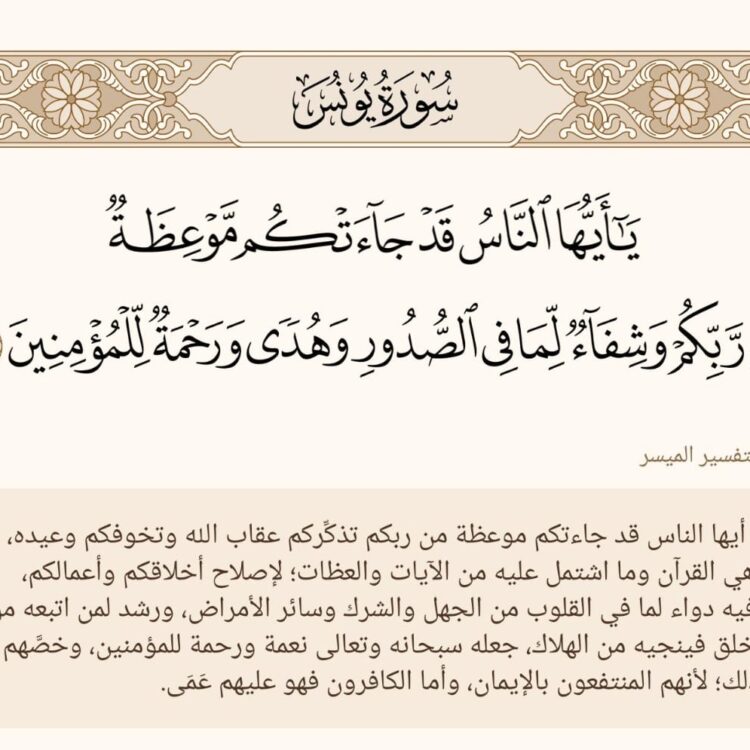 سُورَةُ يُونُسَ
يَٰٓأَيُّهَا ٱلنَّاسُ قَدۡ جَآءَتۡكُم مَّوۡعِظَةٞ
رَّبِّكُمۡ وَشِفَآءٞ لِّمَا فِي ٱلصُّدُورِ وَهُدٗى وَرَحۡمَةٞ لِّلۡمُؤۡمِنِينَ
تفسير الميسر
أيها الناس قد جاءتكم موعظة من ربكم تذكِّركم عقاب الله وتخوفكم وعيده،
هي القرآن وما اشتمل عليه من الآيات والعظات؛ لإصلاح أخلاقكم وأعمالكم،
فيه دواء لما في القلوب من الجهل والشرك وسائر الأمراض، ورشد لمن اتبعه
خلق فينجيه من الهلاك، جعله سبحانه وتعالى نعمة ورحمة للمؤمنين، وخصَّهم
لك؛ لأنهم المنتفعون بالإيمان، وأما الكافرون فهو عليهم عَمَى.